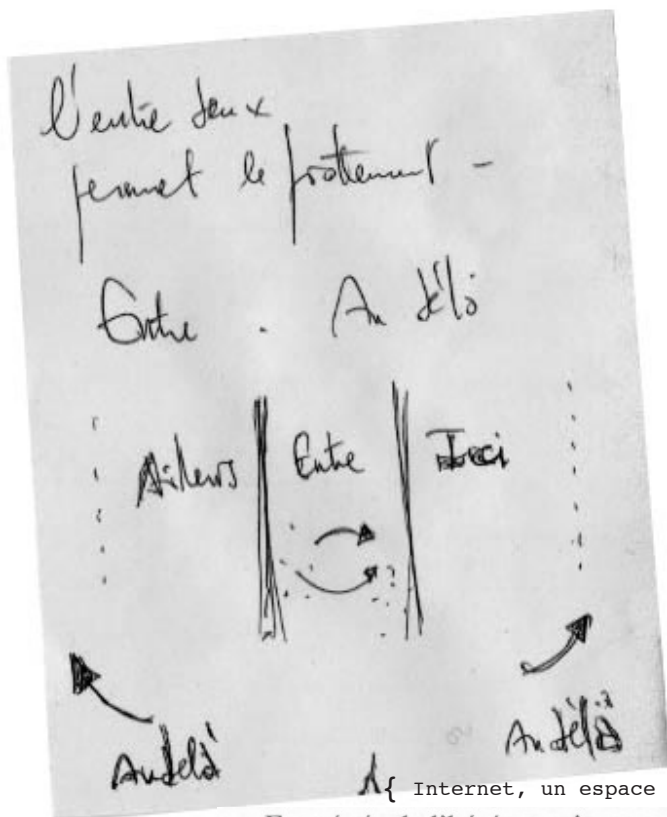 l'entre deux
permet le frottement -
Entre . Au délà
Ailleurs Entre Ici
Audelà Au délà
{ Internet, un espace